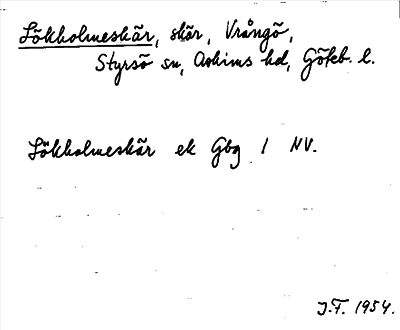 Lökholmeskär, skär, Vrångö,
Styrsö sn, Askims hd, Göteb. l.
Lökholmeskär ek Gbg 1 NV.
J.F. 1954.